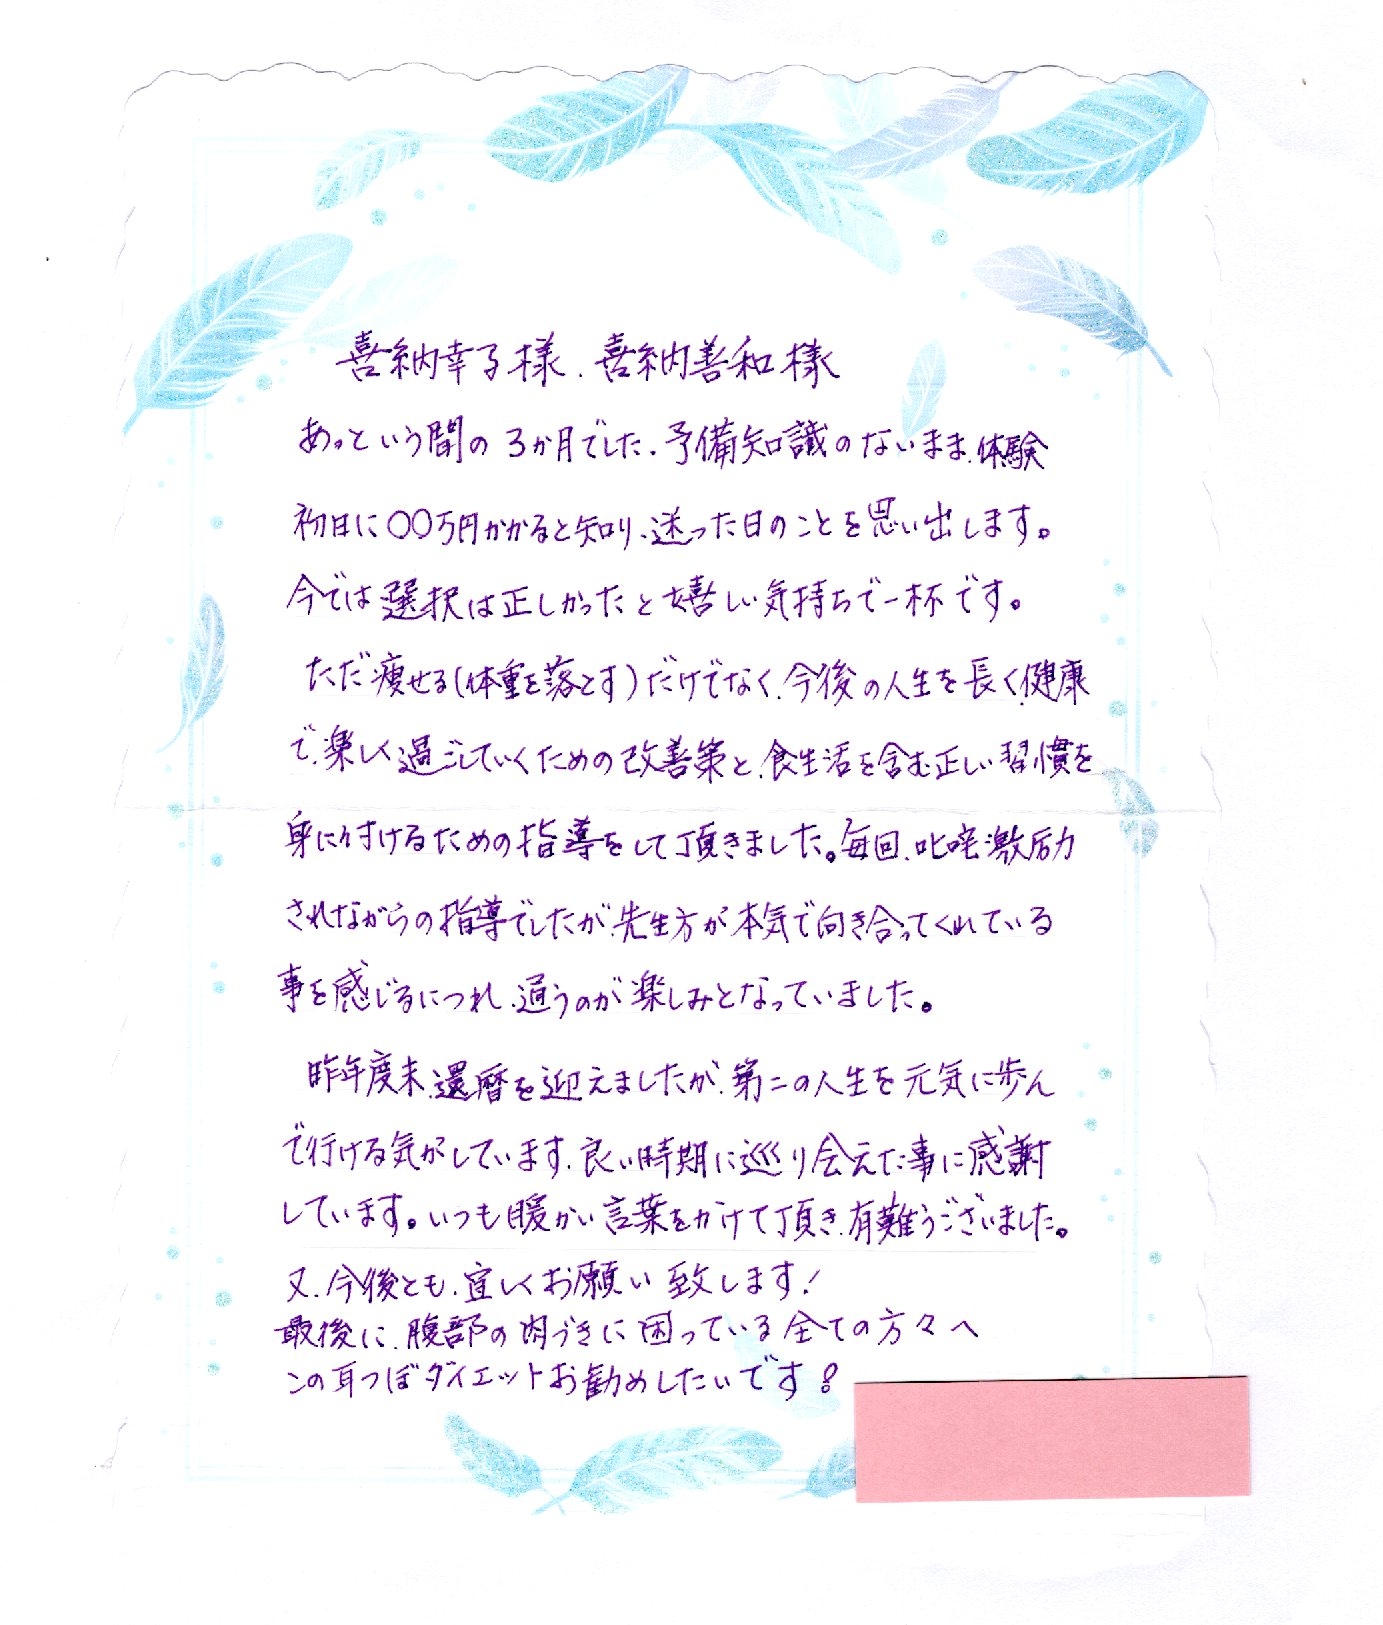 喜納幸子様、喜納善和様
あっという間の3か月でした。予備知識のないまま、体験
初日に〇〇万円かかると知り、迷った日のことを思い出します。
今では選択は正しかったと嬉しい気持ちで一杯です。
ただ痩せる(体重を落とす)だけでなく、今後の人生を長く、健康
で、楽しく過ごしていくための改善策と、食生活を含む正しい習慣を
身に付けるための指導をして頂きました。毎回、叱咤激励
されながらの指導でしたが、先生方が本気で向き合ってくれている
事を感じるにつれ、通うのが楽しみとなっていました。
昨年度末、還暦を迎えましたが、第二の人生を元気に歩ん
で行ける気がしています、良い時期に巡り会えた事に感謝
しています。いつも暖かい言葉をかけて頂き、有難うございました。
又、今後とも、宜しくお願い致します!
最後に、腹部の肉づきに困っている全ての方々へ
この耳つぼダイエットお勧めしたいです!